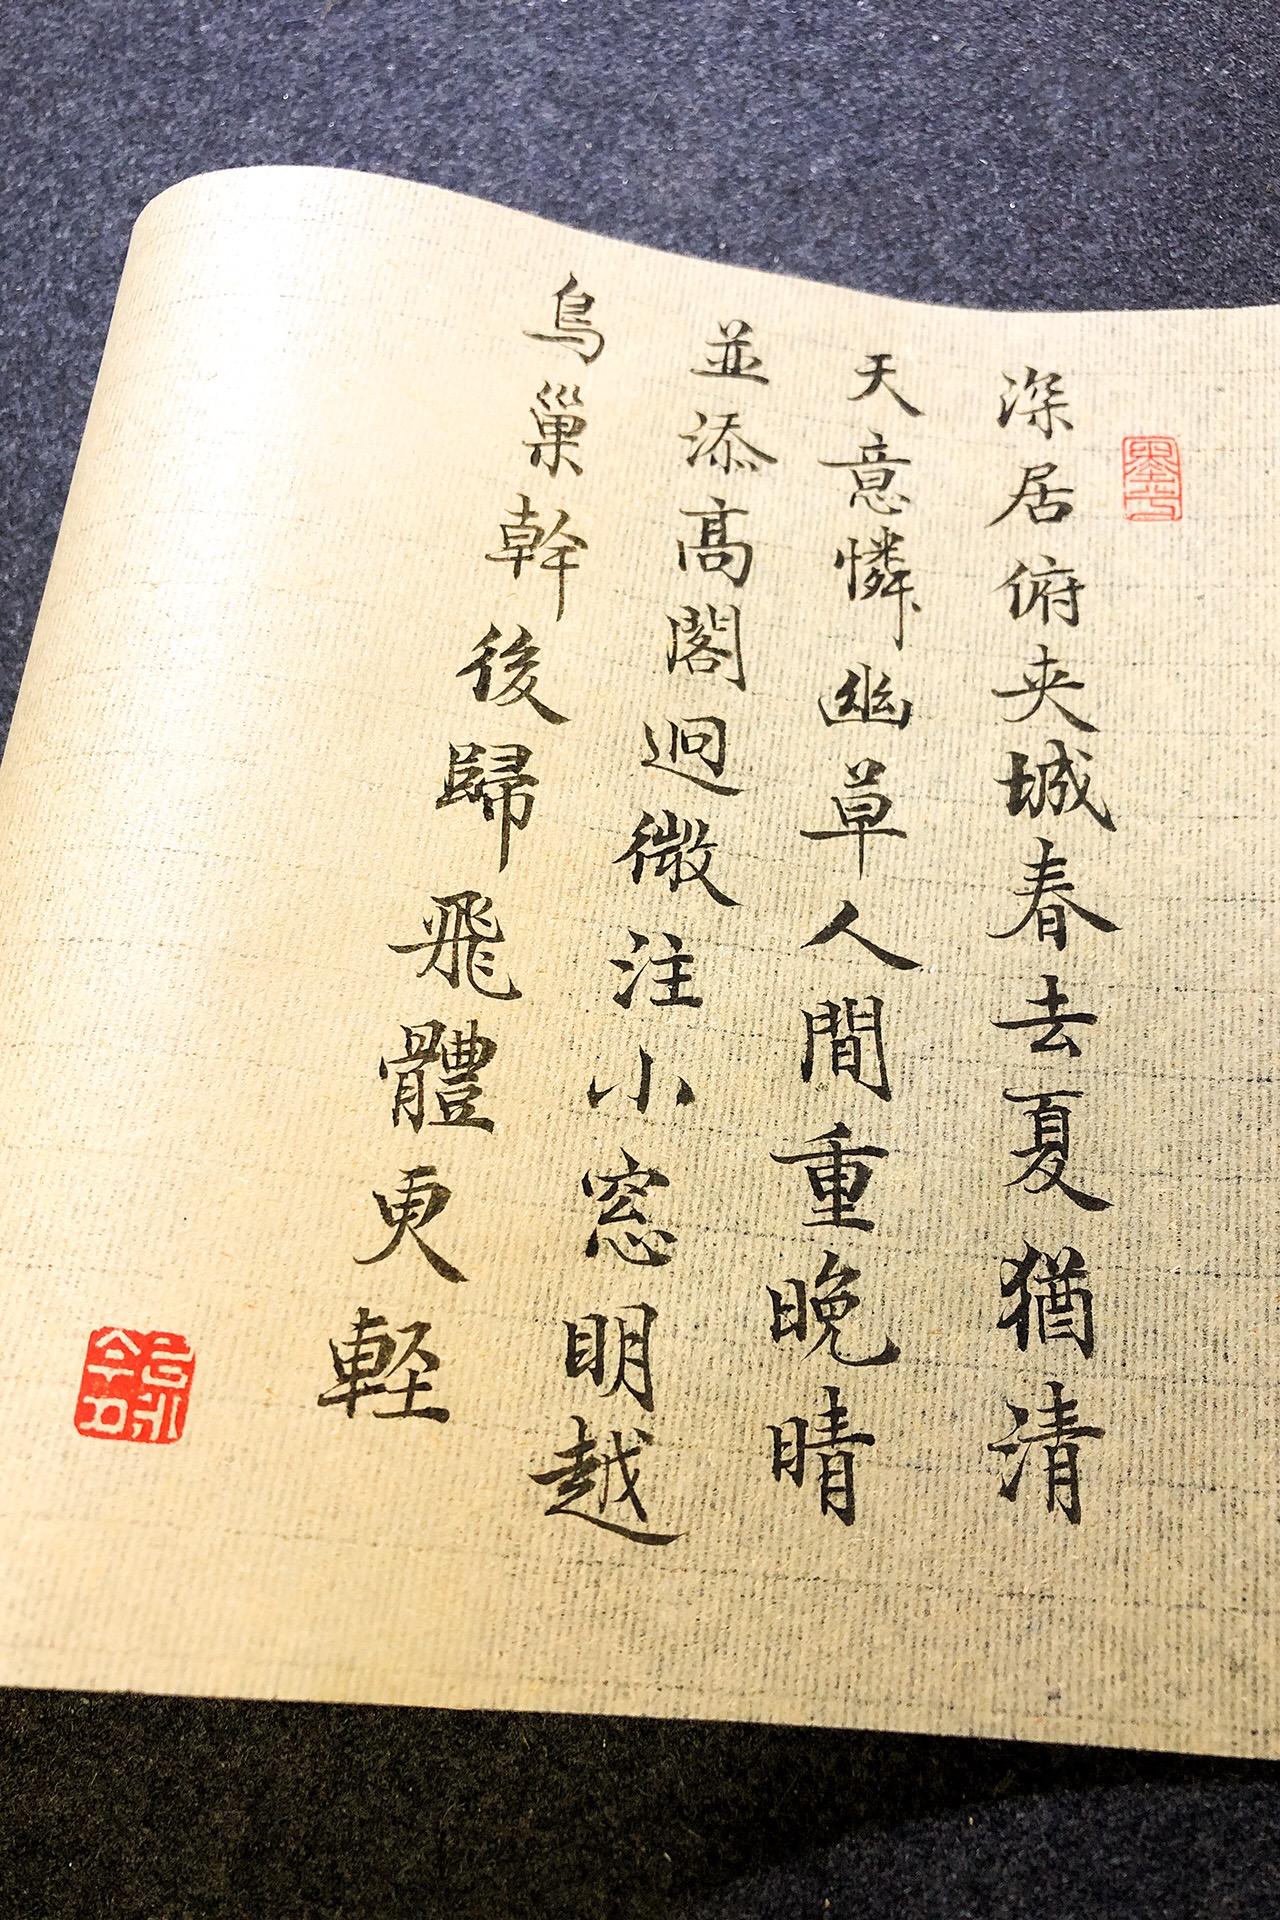 深居俯夹城春去夏猶清
天意憐幽草人間重晚晴
並添高閣迥微注小窓明越
鳥巢幹後歸飛體更輕